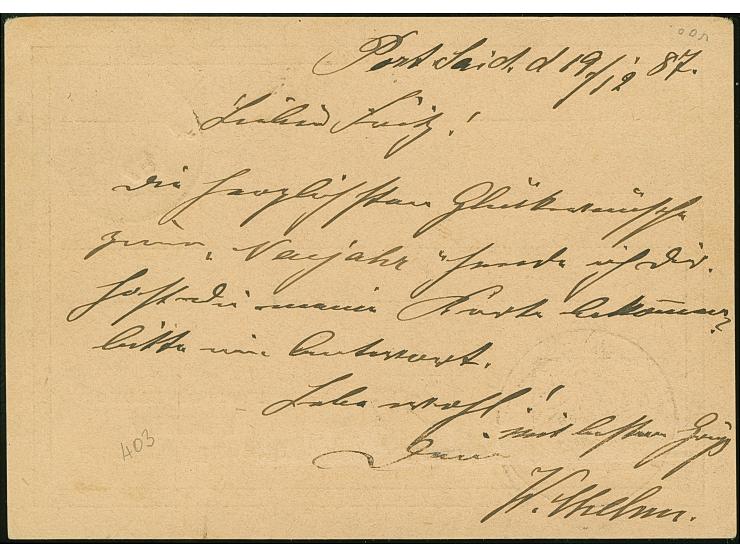 Port Said. d 19/12 87.
Lieber Fritz!
Die herzlichsten Glückwünsche
zum „Neujahr" sende ich Dir.
Hast Du meine Karte bekommen?
bitte um Antwort.
Lebe wohl!
mit besten Gruß
Dein
Wilhelm.
403